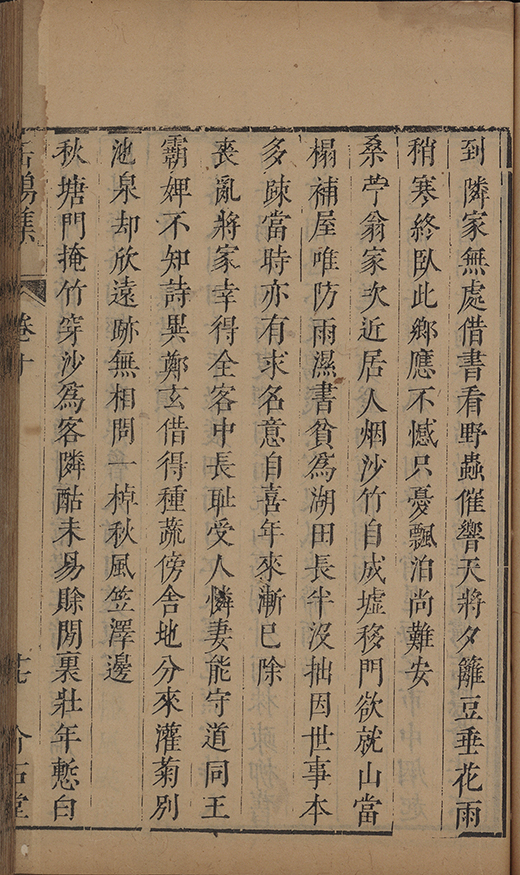 到隣家無處借書看野蟲催響天將夕籬豆垂花雨
稍寒終臥此鄉應不憾只憂飄泊尚難安
桑苧翁家次近居人烟沙竹自成墟移門欲就山當
榻補屋唯防雨濕書貧爲湖田長半沒拙因世事本
多疎當時亦有求名意自喜年來漸已除
喪亂將家幸得全客中長耻受人憐妻能守道同王
霸婢不知詩異鄭玄借得種蔬傍舍地分來灌菊別
池泉却欣遠跡無相問一棹秋風笠澤邊
秋塘門掩竹穿沙爲客隣酤未易賒閒裏壯年慙白
卷十